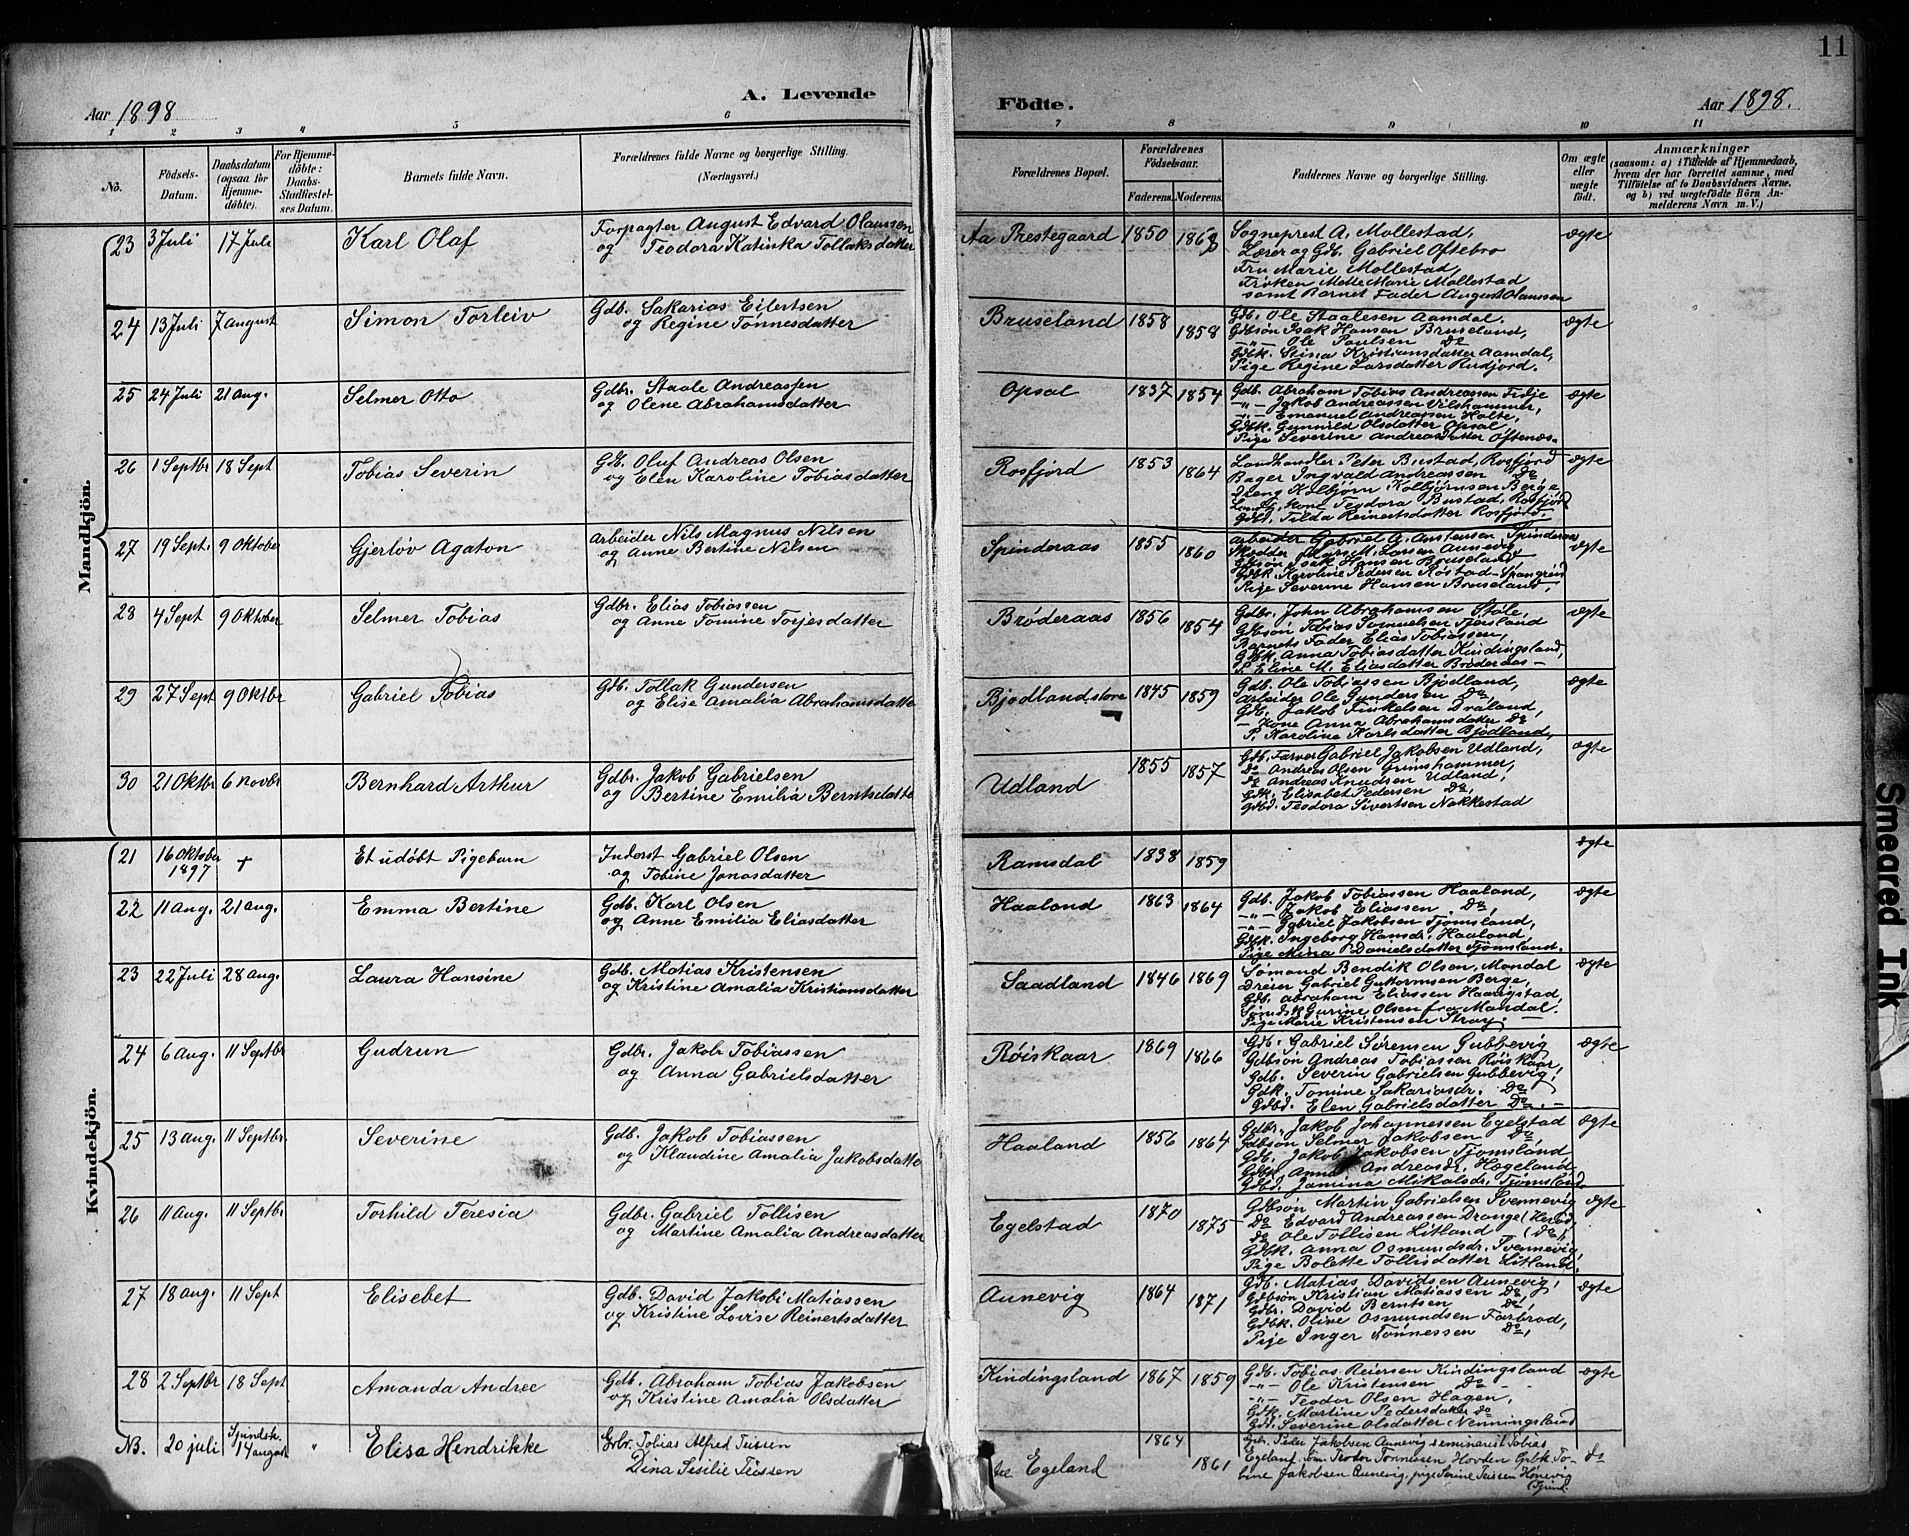 11
Aar 1898
A. Levende
Födte.
Aar 1898.
1 2 3 4 5 6 7 8 9 10 11
No.
Födsels-
Datum.
Daabsdatum
(ogsaa for
Hjemme-
döbte).
For Hjemme-
döbte:
Daabs-
Stadfæstel-
ses Datum.
Barnets fulde Navn.
Forældrenes fulde Navne og borgerlige Stilling.
(Næringsvei.)
Forældrenes Bopæl.
Forældrenes
Födselsaar.
Faderens. Moderens.
Faddernes Navne og borgerlige Stilling.
Om ægte
eller
uægte
födt.
Anmærkninger
(saasom: a) i Tilfælde af Hjemmedaab,
hvem der har forrettet samme, med
Tilföielse af to Daabsvidners Navne,
og b) ved uægtefödte Börn An-
melderens Navn m. V.)
Mandkjön.
23 3 Juli 17 Juli Karl Olaf
Forpagter August Edvard Olaussen
og Teodora Katinka Tollaksdatter
Aa Prestegaard 1850 1868
Sogneprest A. Mollestad,
Lærer og Gdb. Gabriel Oftebro
Fru Marie Mollestad,
Frøken Mette Marie Mollestad
samt Barnet Fader August Olaussen
ægte
24 13 Juli 7 August Simon Torleiv
Gdb. Sakarias Eilertsen
og Regine Tønnesdatter
Bruseland 1858 1858
Gdb. Ole Staalesen Aamdal.
Gdbsøn Isak Hansen Bruseland,
-"- Ole Paulsen Do
Gdbk. Stina Kristiansdatter Aamdal,
Pige Regine Larsdatter Rudjord.
ægte
25 24 Juli 21 Aug. Selmer Otto
Gdbr. Staale Andreassen
og Olene Abrahamsdatter
Opsal 1837 1854
Gdb. Abraham Tobias Andreassen Fidje
-"- Jakob Andreassen Vilshammer,
-"- Emanuel Andreassen Holte,
Gdbk. Gunnild Olsdatter Opsal,
Pige Severine Andreasdatter Oftenæs-
ægte
26 1 Septbr 18 Sept Tobias Severin
Gdb. Oluf Andreas Olsen
og Elen Karoline Tobiasdatter
Rosfjord 1853 1864
Landhandler Peter Bustad, Rosfjord
Bager Ingvald Andreassen Do
Dreng Kolbjørn Kolbjørnsen Berge
Kone Teodora Bustad, Rosfjord
Gdbt. Tilda Reinertsdatter Rosfjord.
ægte
27 19 Sept. 9 Oktober Gjerløv Agaton
Arbeider Nils Magnus Nilsen
og Anne Bertine Nilsen
Spinderaas 1855 1860
Arbeider Gabriel G. Austensen, Spinderaas
Skrædder Lars M. Larsen Aunevig
Gdbsøn Isak Hansen Bruseland
Gdbk. Karoline Pedersen Røstad-Spangreid
Pige Severine Hansen Bruseland,
ægte
28 4 Sept 9 Oktober Selmer Tobias
Gdbr. Elias Tobiassen
og Anne Tomine Torjesdatter
Brøderaas 1856 1854
Gdbr. John Abrahamsen Støle,
Gdbsøn Tobias Samuelsen Fjersland
Barnets Fader Elias Tobiassen,
Gdbk. Anna Tobiasdatter Kindingsland,
P. Eline M. Eliasdatter Brøderaas-
ægte
29 27 Sept 9 Oktbr Gabriel Tobias
Gdb. Tollak Gundersen
og Elise Amalia Abrahamsdatte
Bjødland store 1845 1859
Gdb. Ole Tobiassen Bjødland,
Arbeider Ole Gundersen Do,
Gdb. Jakob Finkelsen Draland,
- Kone Anna Abrahamsdatter Do
P. Karoline Karlsdatter Bjødland,
ægte
30 21 Oktbr 6 Novbr Bernhard Arthur
Gdbr. Jakob Gabrielsen
og Bertine Emilia Berntsdatte
Udland 1855 1857
Gdb. Farver Gabriel Jakobsen Udland,
Do Andreas Olsen Grimshammer,
Do Andreas Knudsen Udland,
Gdk. Elisabet Pedersen Do,
Gdbd. Teodora Sivertsen Nakkestad
ægte
Kvindekjön.
21 16 Oktober 1897 + Et udöbt Pigebarn
Inderst Gabriel Olsen
og Tobine Jonasdatter
Ramsdal 1838 1859
ægte
22 11 Aug. 21 Aug. Emma Bertine
Gdb. Karl Olsen
og Anne Emilia Eliasdatter
Haaland 1863 1864
Gdb. Jakob Tobiassen Haaland,
-"- Jakob Eliassen Do,
-"- Gabriel Jakobsen Tjomsland,
Gdbk. Ingeborg Hansdr. Haaland,
Pige Mina Danielsdatter Tjomsland.
ægte
23 22 Juli 28 Aug. Laura Hansine
Gdb. Matias Kristensen
og Kristine Amalia Kristiansdatter
Saadland 1846 1869
Sømand Bendik Olsen, Mandal
Dreier Gabriel Guttormsen Berge,
Gdb. Abraham Eliassen Haaligstad,
Sømdsk Gurine Olsen fra Mandal.
Pige Marie Kristensen Stray. -
ægte
24 6 Aug. 11 Septbr Gudrun
Gdbr. Jakob Tobiassen
og Anna Gabrielsdatter
Røiskaar 1869 1866
Gdb. Gabriel Sørensen Gubbevig
Gdbsøn Andreas Tobiassen Røiskaar,
Gdb. Severin Gabrielsen Gubbevig,
Gdk. Tomine Sakariasdr. Do,
Gdbd. Elen Gabrielsdatter Do. -
ægte
25 13 Aug. 11 Septbr. Severine
Gdb. Jakob Tobiassen
og Klaudine Amalia Jakobsdatte
Haaland 1856 1864
Gdbr. Jakob Johannessen Egelstad
Gdbsøn Selmer Jakobsen Do,
Gdb. Jakob Jakobsen Tjomsland
Gdbk. Anna Andreasdr. Hægeland,
Gdbd. Jamina Mikalsdr. Tjomsland,
ægte
26 11 Aug. 11 Septbr Torhild Teresia
Gdbr. Gabriel Tollisen
og Martine Amalia Andreasdatter
Egelstad 1870 1875
Gdbsøn Martin Gabrielsen Svennevig
Do Edvard Andreassen Drange (Herød,
Do Ole Tollisen Litland (Do),
Gdbk. Anna Osmundsdr. Svennevig,
Pige Bolette Tollisdatter Litland.
ægte
27 18 Aug. 11 Sept Elisebet
Gdb. David Jakobi Matiassen
og Kristine Lovise Reinertsdatter
Aunevig 1864 1871
Gdb. Matias Davidsen Aunevig,
Gdbsøn Kristian Matiassen Do,
Gdbr. David Berntsen Do,
Gdbk. Oline Osmundsen Farbrod,
Pige Inger Tønnessen Do,
ægte
28 2 Septbr 18 Sept Amanda Andree
Gdb. Abraham Tobias Jakobsen
og Kristine Amalia Olsdatter
Kindingsland 1867 1859
Gdb. Tobias Reiersen Kindingsland
-"- Ole Kristensen Do -
-"- Teodor Olsen Hagen,
Gdk. Martine Pedersdatter Do
Gdd. Severine Olsdatter Nenningsland
ægte
NB. 20 juli Spindsk. 14 august " Elisa Hendrikke
Grbr. Tobias Alfred Teissen
Dina Sisilie Teissen
Egeland 1864 1861
Grbr. Peder Jakobsen Aunevig seminarist Tobias
Egeland. Teodor Tønnessen Hovden Grbk To-
bine Jakobsen Aunevig, pige Serine Teissen Hønevig
(Spind.
do
Smeared Ink